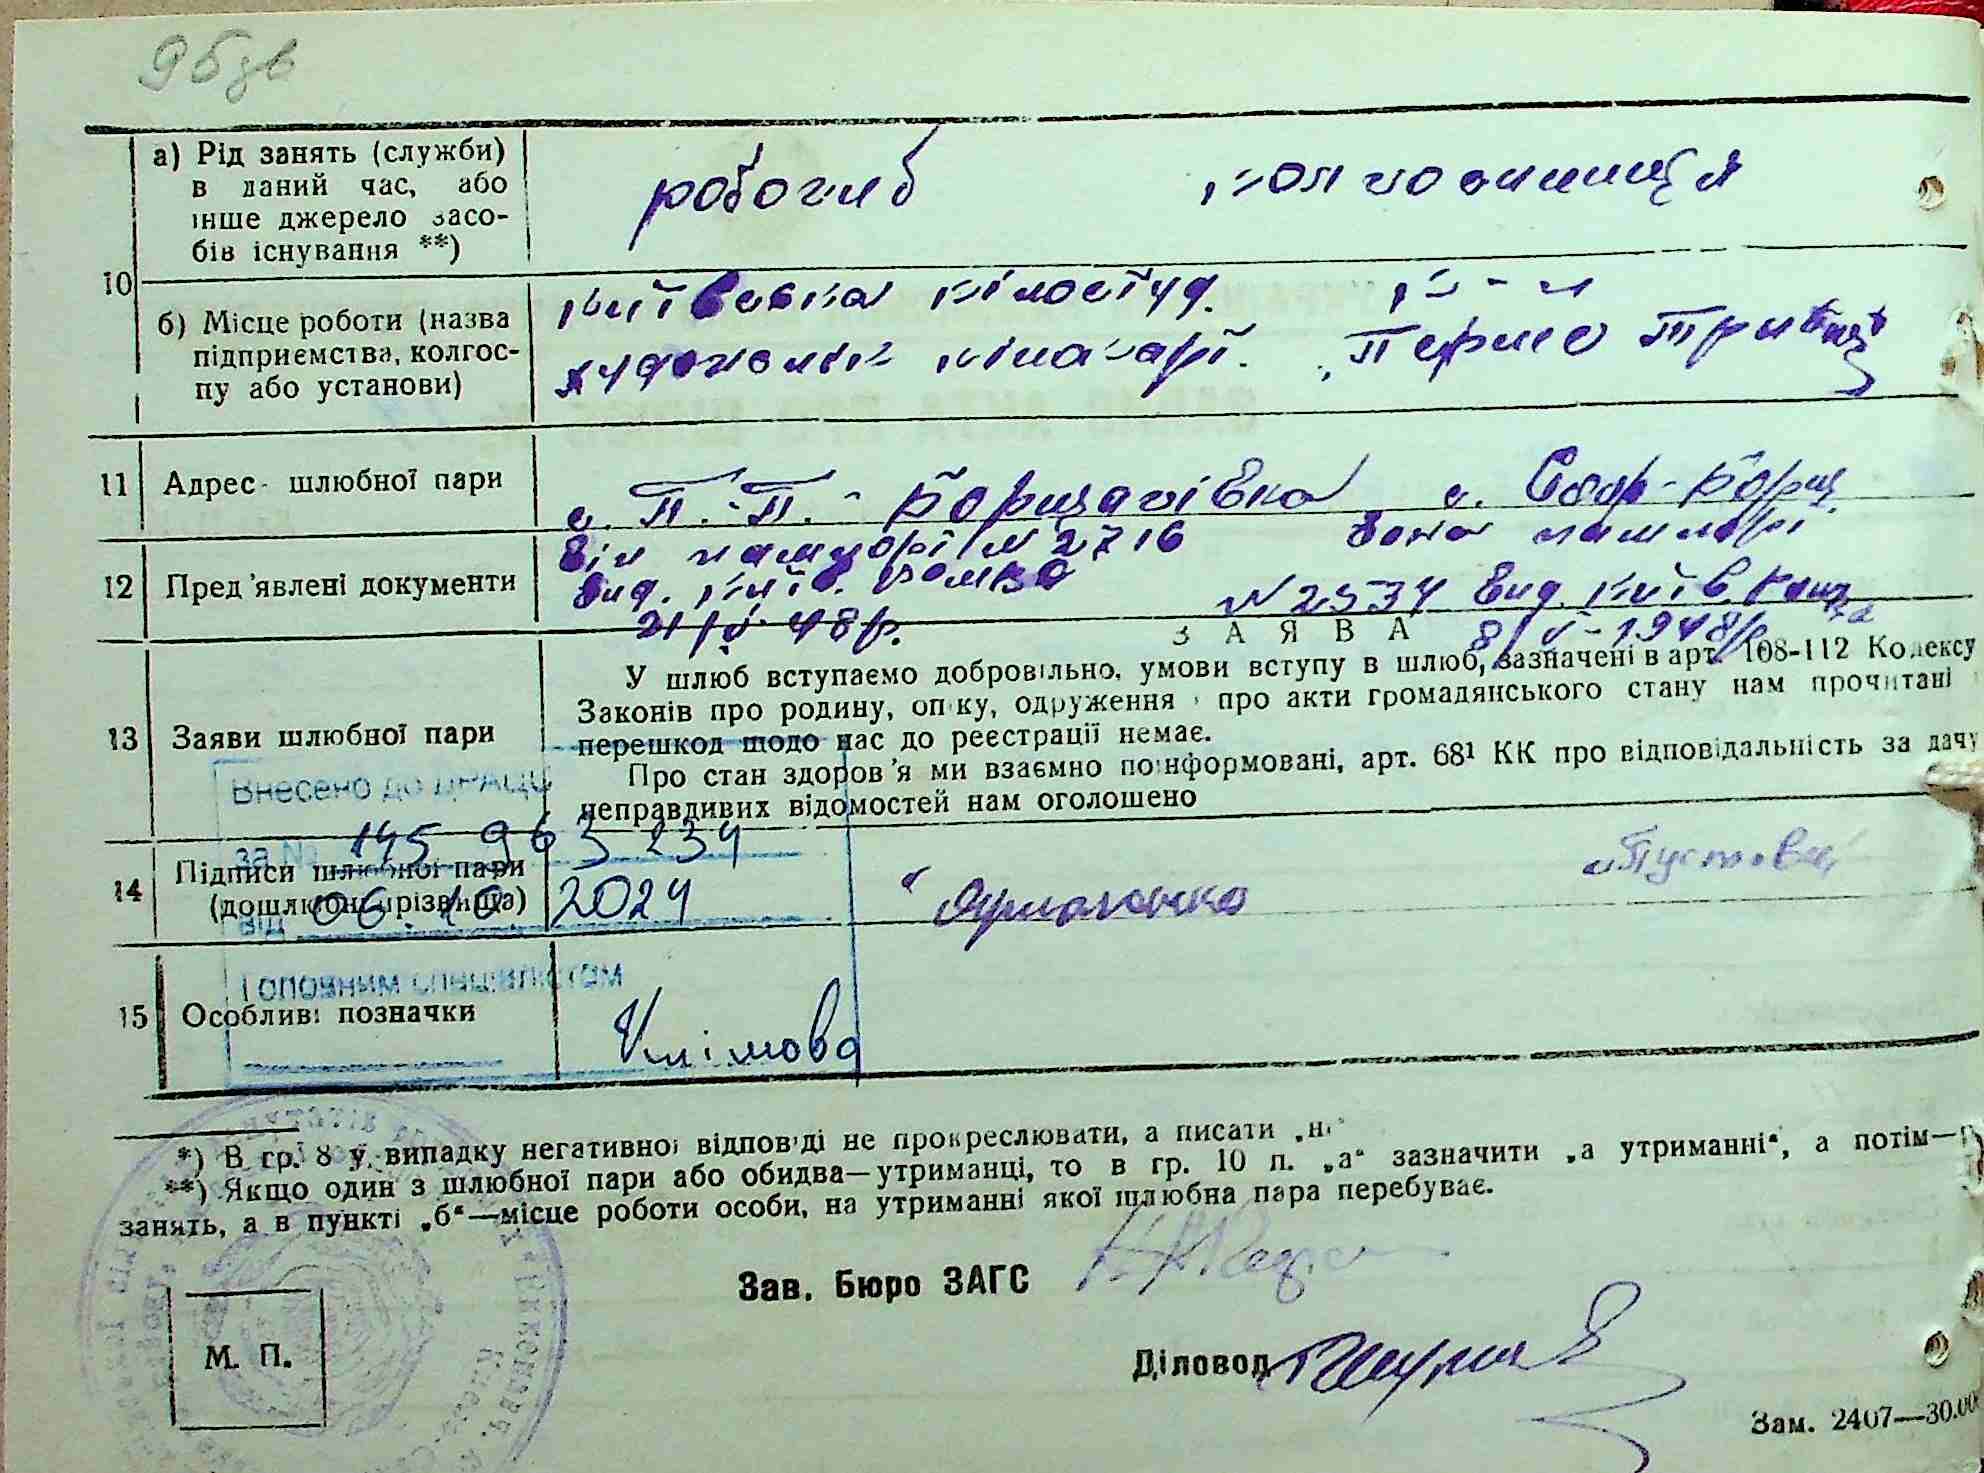 96зв
а) Рід занять (служби)
в даний час, або
інше джерело засо-
бів існування **)
робочий
колгоспниця
10
б) Місце роботи (назва
підприємства, колгос-
пу або установи)
Київська кіностуд.
художніх кінокарт.
к-п
"Перше Травня"
11 Адрес шлюбної пари
с. П.-П.-Борщагівка с. Соф-Борщ.
12 Пред'явлені документи
Він паспорт № 2716 Вона паспорт
вид. Київ.
21/V-48р.
№ 2534 вид. Київ
8/V-1948р.
13 Заяви шлюбної пари
ЗАЯВА
У шлюб вступаємо добровільно, умови вступу в шлюб, зазначені в арт. 108-112 Кодексу
Законів про родину, опіку, одруження і про акти громадянського стану нам прочитані і
перешкод щодо нас до реєстрації немає.
Про стан здоров'я ми взаємно поінформовані, арт. 68¹ КК про відповідальність за дачу
неправдивих відомостей нам оголошено
Внесено до ДРАЦС
за № 145 963 234
від 06.10.2024
Головним спеціалістом
Клімова
14 Підписи шлюбної пари
(дошлюбні прізвища)
Пустовіт
15 Особливі позначки
*) В гр. 8 у випадку негативної відповіді не прокреслювати, а писати „ні“
**) Якщо один з шлюбної пари або обидва—утриманці, то в гр. 10 п. „а“ зазначити „а утриманні“, а потім—рід
занять, а в пункті „б“—місце роботи особи, на утриманні якої шлюбна пара перебуває.
Зав. Бюро ЗАГС
М. П.
Діловод
Зам. 2407—30.00